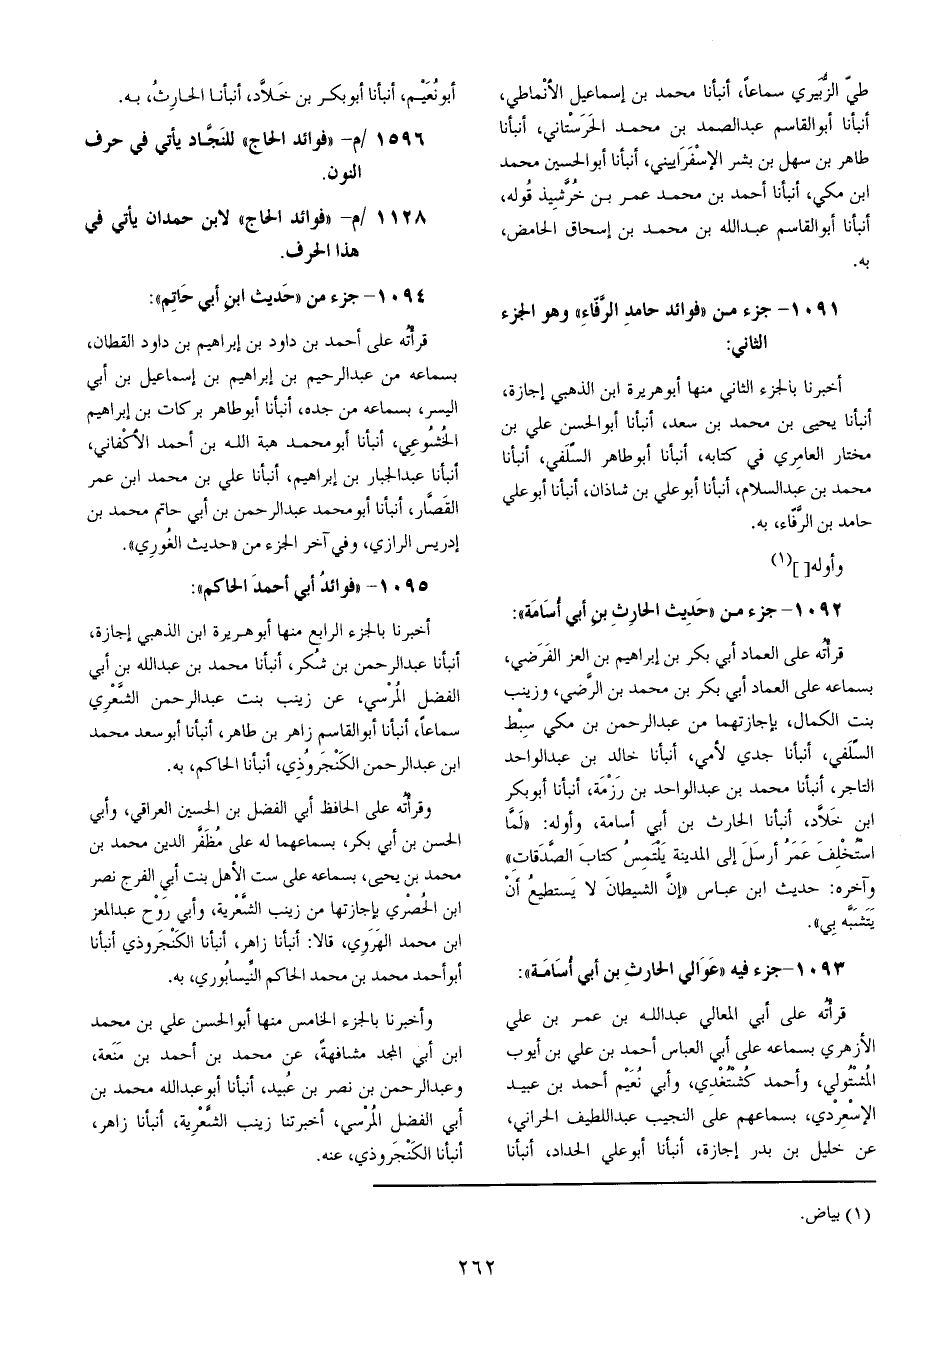 طيّ الزُّبَيري سماعاً، أنبأنا محمد بن إسماعيل الأنْماطي،
أنبأنا أبوالقاسم عبدالصمد بن محمـد الحَرَسْتاني، أنبأنا
طاهر بن سهل بن بشر الإسْفَرَاييني، أنبأنا أبوالحسين محمد
ابن مكي، أنبأنا أحمد بن محمـد عمـر بـن خُرَّشيذ قُوله،
أنبأنا أبوالقاسم عبـدالله بن محمـد بن إسحاق الحامض،
به.
١٠٩١- جزء مـن «فوائد حامدِ الرَّفَّاءِ» وهو الجزء
الثاني:
أخبرنا بالجزء الثاني منها أبوهريرة ابن الذهبي إجازة،
أنبأنا يحيى بن محمد بن سعد، أنبأنا أبوالحسن علي بن
مختار العامِري في كتابه، أنبأنا أبوطاهر السِّلَفي، أنبأنا
محمد بن عبدالسلام، أنبأنا أبوعلي بن شاذان، أنبأنا أبوعلي
حامد بن الرَّفَّاء، به.
وأوله[ ](١)
١٠٩٢- جزء مـن «حَدِيث الحارِثِ بنِ أبي أُسَامَة»:
قرأتُه على العماد أبي بكر بن إبراهيم بن العز الفَرَضي،
بسماعه على العماد أبي بكر بن محمد بن الرَّضي، وزينب
بنت الكمال، بإجازتهما من عبدالرحمن بن مكي سِبْط
السِّلَفي، أنبأنا جدي لأمي، أنبأنا خالد بن عبدالواحد
التاجر، أنبأنا محمد بن عبدالواحد بن رَزْمَة، أنبأنا أبوبكر
ابن خَلاَّد، أنبأنا الحارث بن أبي أسامة، وأوله: «لَمَّا
اسْتُخْلِفَ عَمَرُ أرسَلَ إلى المدينة يَلْتَمِسُ كتابَ الصَّدَقاتِ»
وآخره: حديث ابن عباس «إنَّ الشيطانَ لا يَستطيعُ أنْ
يَتَشَبَّه بِي».
١٠٩٣-جزء فيه «عَوَالي الحارثِ بن أبي أُسَامَـة»:
قرأتُه على أبي المعالي عبداللـه بن عمـر بن علي
الأزهري بسماعه على أبي العباس أحمد بن علي بن أيوب
المُشْتُولي، وأحمد كُشْتُغْدي، وأبي نُعَيْم أحمد بن عبيـد
الإسْعِرْدي، بسماعهم على النجيب عبداللطيف الحراني،
عن خليل بن بدر إجازة، أنبأنا أبوعلي الحداد، أنبأنا
أبونُعَيْم، أنبأنا أبوبكـر بن خَـلاَّد، أنبأنـا الحـارثُ، بـه.
١٥٩٦ /م- «فوائد الحاج» للنَجَّـاد يأتي في حرف
النون.
١١٢٨ /م- «فوائد الحاج» لابن حمدان يأتي في
هذا الحرف.
١٠٩٤- جزء من «حَديث ابنِ أبي حَاتِم»:
قرأتُه على أحمد بن داود بن إبراهيم بن داود القطان،
بسماعه من عبدالرحيم بن إبراهيم بن إسماعيل بن أبي
اليسر، بسماعه من جده، أنبأنا أبوطاهر بركات بن إبراهيم
الخُشُوعي، أنبأنا أبومحمـد هبة اللـه بن أحمد الأكْفاني،
أنبأنا عبدالجبار بن إبراهيم، أنبأنا علي بن محمد ابن عمر
القَصَّار، أنبأنا أبومحمد عبدالرحمن بن أبي حاتم محمد بن
إدريس الرازي، وفي آخر الجزء من «حديث الغُوري».
١٠٩٥- «فوائدُ أبي أحمدَ الحاكم»:
أخبرنا بالجزء الرابع منها أبوهريرة ابن الذهبي إجازة،
أنبأنا عبدالرحمن بن شُكر، أنبأنا محمد بن عبدالله بن أبي
الفضل المُرْسي، عن زينب بنت عبدالرحمن الشَّعْري
سماعاً، أنبأنا أبوالقاسم زاهر بن طاهر، أنبأنا أبوسعد محمد
ابن عبدالرحمن الكَنْجَروُذِي، أنبأنا الحاكم، به.
وقرأتُه على الحافظ أبي الفضل بن الحسين العراقي، وأبي
الحسن بن أبي بكر، بسماعهما له على مُظَفَّر الدين محمد بن
محمد بن يحيى، بسماعه على ست الأهل بنت أبي الفرج نصر
ابن الحُصْري بإجازتها من زينب الشَّعْرية، وأبي رَوْح عبدالمعز
ابن محمد الهَرَوي، قالا: أنبأنا زاهر، أنبأنا الكَنْجَروذي أنبأنا
أبوأحمد محمد بن محمد الحاكم النِّيسابُوري، به.
وأخبرنا بالجزء الخامس منها أبوالحسن علي بن محمد
ابن أبي المجد مشافهةً، عن محمد بن أحمد بن مَنَعة،
وعبدالرحمن بن نصر بن عُبيد، أنبأنا أبوعبدالله محمد بن
أبي الفضل المُرْسي، أخبرتنا زينب الشَّعْرية، أنبأنا زاهر،
أنبأنا الكَنْجَروذي، عنه.
(١) بياض.
٢٦٢